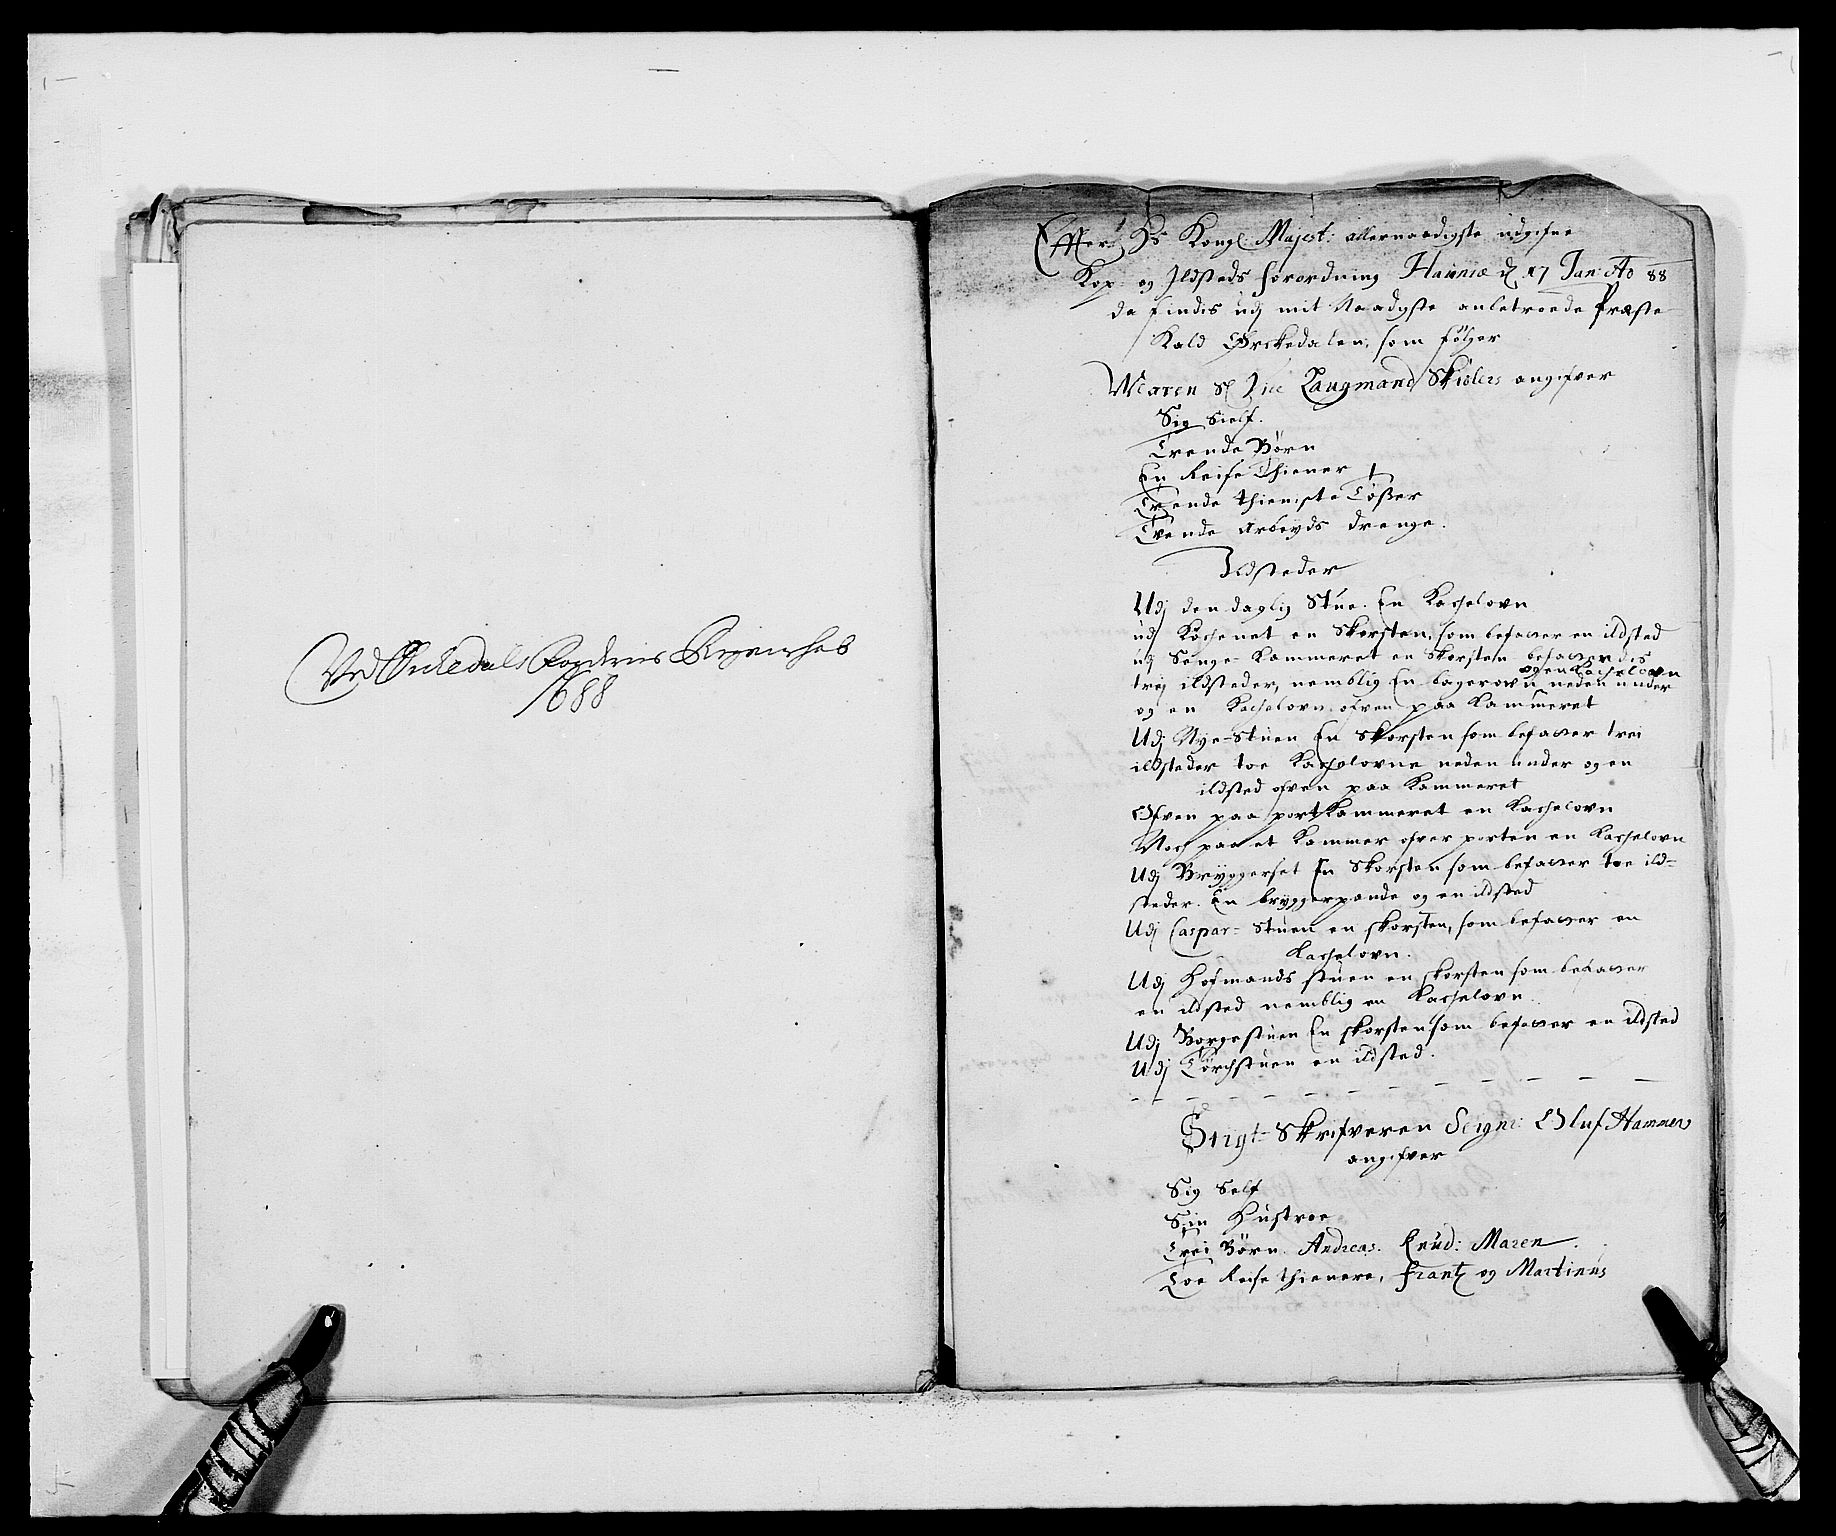 Ved Orkedals Fogderies Regenskab
1688
Effter Hs Kongl: Majest: allernaadigste udgifne
Kop- og Ildsteds forordning Hauniæ d 17 Jan: Ao 88
da findis udj mit Naadigste anbetroede Præste
Kald Ørckedalen, som følger
Maren Sl Vice Laugmand Skiølers angifver
Sig Sielf.
Trende Børn
En Reise Thiener
Trende thieniste Tøßer
Tvende Arbeyds drenge.
Ildsteder
Udj den daglig Stue. En Kachelovn
udj Køchenet en Skorsten, som befatter en ildsted
udj Senge-Kammeret en Skorsten befatter dis
og en Kachelovn
trej ildsteder, nemblig En bagerovn neden under
og en Kachelovn ofven paa Kammeret
Udj Nye-Stuen En Skorsten som befatter trei
ildsteder toe Kachelovne neden under og en
ildsted ofven paa Kammeret
Ofven paa portKammeret en Kachelovn
Noch paa et Kammer ofver porten en Kachelovn
Udj Bryggerset En Skorsten som befatter toe ild-
steder. En bryggerpande og en ildsted
Udj Caspar-Stuen en skorsten, som befatter en
Kachelovn.
Udj Hofmands stuen en skorsten som befatter
en ildsted nemblig en Kachelovn.
Udj Borgestuen En skorsten som befatter en ildsted
Udj Tørchstuen en ildsted.
Stigt-Skrifveren Seign: Oluf Hammer
angifver
Sig Self
Sin Hustroe
Trei Børn. Andreas. Knud: Maren.
Toe Reise thienere, Frantz og Martinus